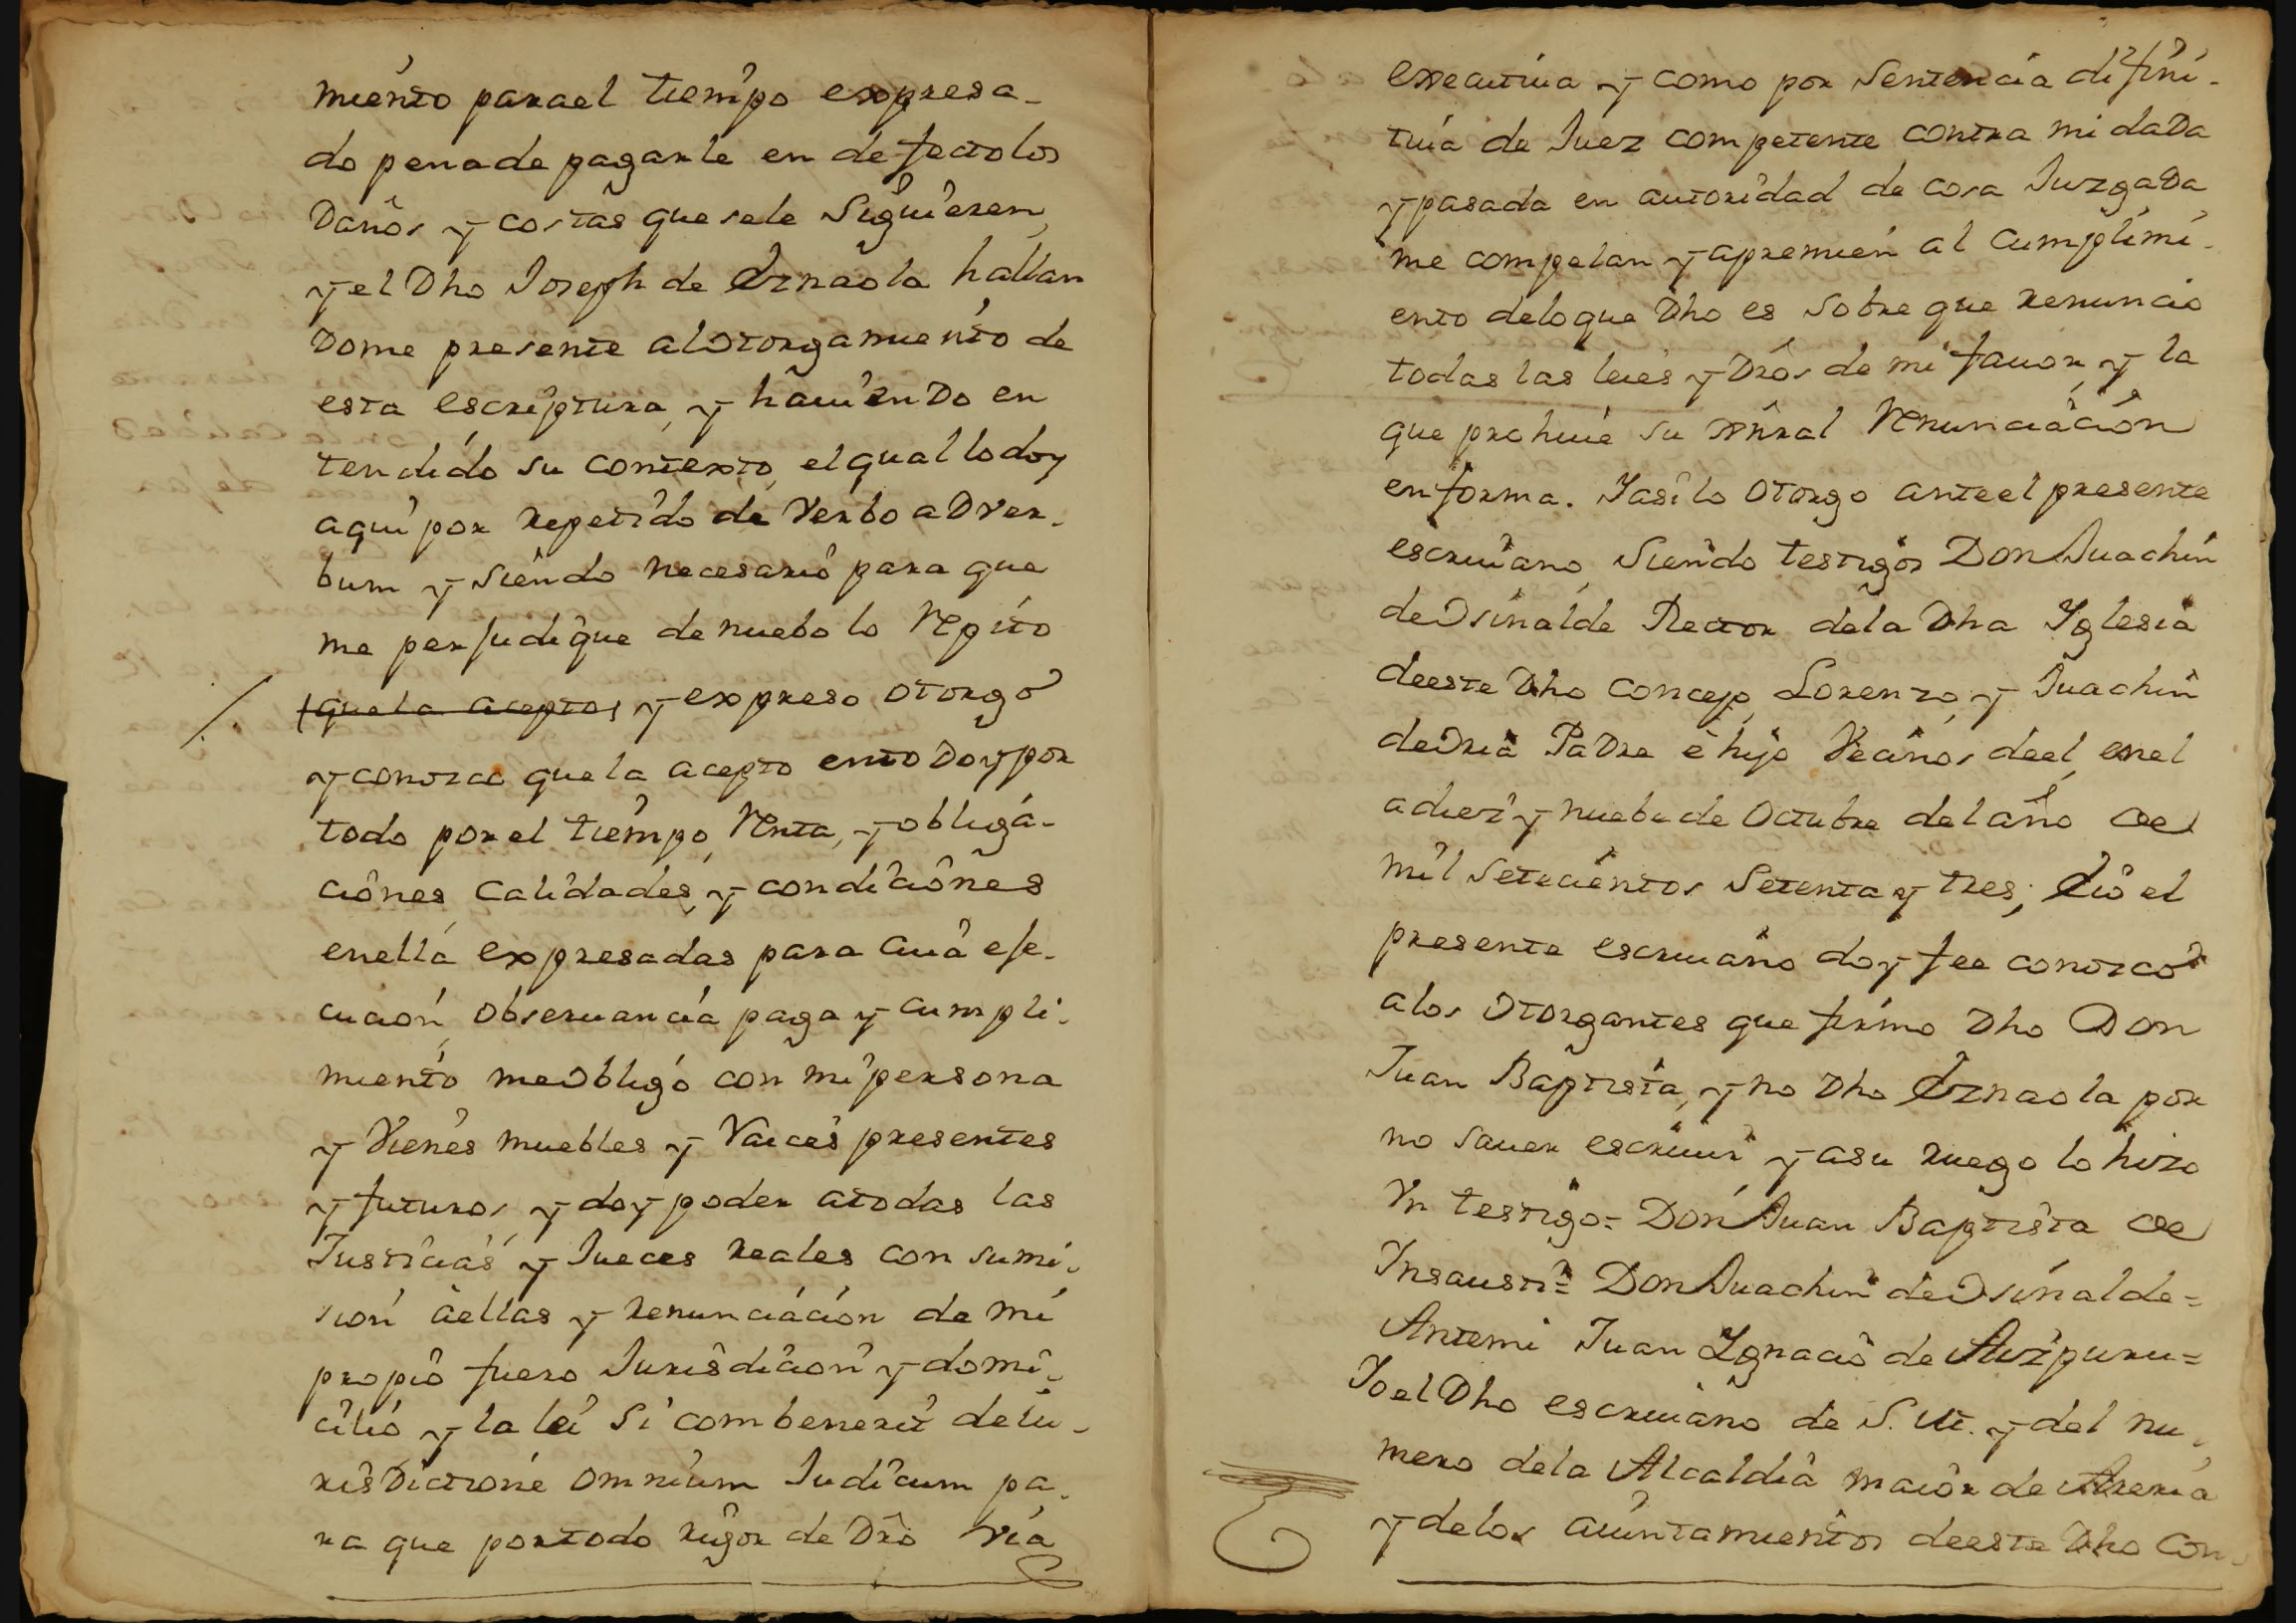 miento parael tiempo expresa-
do penade pagarle en defectolos
Daños y costas quesele Siguieren,
y el Dho Joseph de Iznaola hallan
Dome presente alotorgamiento de
esta escriptura, y hauienDo en
tendido su contexto, elqual lodoy
aqui por repetido de Verbo aDver-
bum y siendo necesario para que
me perjudique denuebo lo Repito
(quela acepto) y expreso otorgo
y conozco quela acepto entoDoypor
todo porel tiempo, Renta, y obliga-
ciones Calidades, y condiciones
enella expresadas para cuia eje-
cucion, observancia paga y cumpli-
miento meobligo con mi persona
y Vienes muebles y Raices presentes
y futuros, y doy poder atodas las
Justicias y Jueces reales con sumi-
sion aellas y renunciacion de mi
propio fuero Jurisdicion y domi-
cilio y la lei si combenerit deiu-
risDictione omnium Judicum pa-
ra que portodo rigor de Dro via
executiua y como por Sentencia difini-
tiuia de Juez competente contra mi daDa
y pasada en autoridad de cosa JuzgaDa
me compelan y apremien al cumplimi-
ento deloque Dho es sobre que renuncio
todas las leies y Dros de mi fauor y la
que prohiue su gnral Renunciacion
enforma. Yasilo otorgo anteel presente
escriuano, Siendo testigos Don Juachin
deOsinalde Rector dela Dha Yglesia
deeste Dho concejo, Lorenzo, y Juachin
deOria PaDre e hijo Vecinos deel, enel
adiez y nuebe de Octubre delaño de
mil Setecientos Setenta y tres; Eio el
presente escriuano doy fee conozco
alos Otorgantes que firmo Dho Don
Juan Baptista, y no Dho Iznaola por
no sauer escriuir y asu ruego lo hizo
Vn testigo= Don Juan Baptista de
Insausti= Don Juachin deOsinalde=
Antemi Juan Ygnacio de Aizpuru=
Yoel Dho escriuano de S. M. y del nu-
mero dela Alcaldia maior de Areria
y delos aiuntamientos deeste Dho Con-